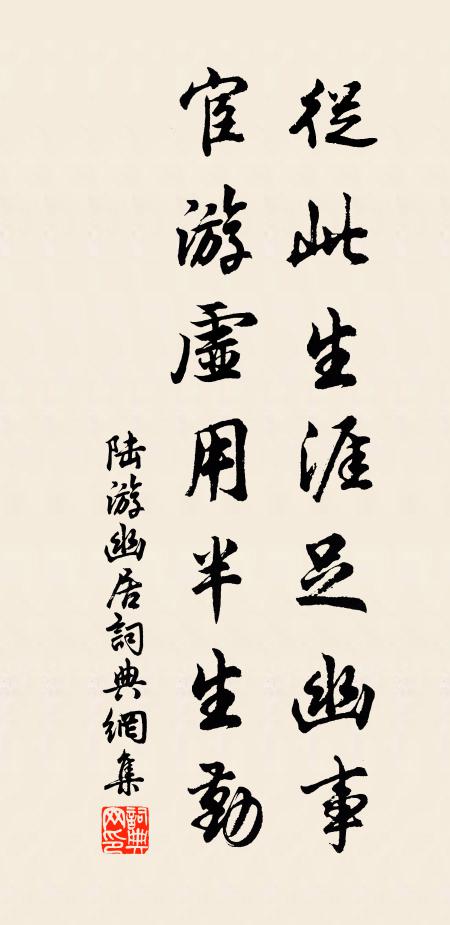 從此生涯足幽事
宦游虛用半生勤
陸游幽居詞典網集
詞典
网印